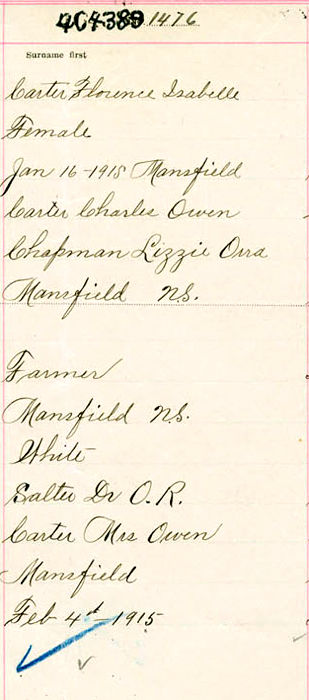 404389 1476
Surname first
Carter Florence Isabelle
Female
Jan 16-1915 Mansfield
Carter Charles Owen
Chapman Lizzie Orra
Mansfield N.S.
Farmer
Mansfield N.S.
White
Salter Dr O. R.
Carter Mrs Owen
Mansfield
Feb 4th 1915